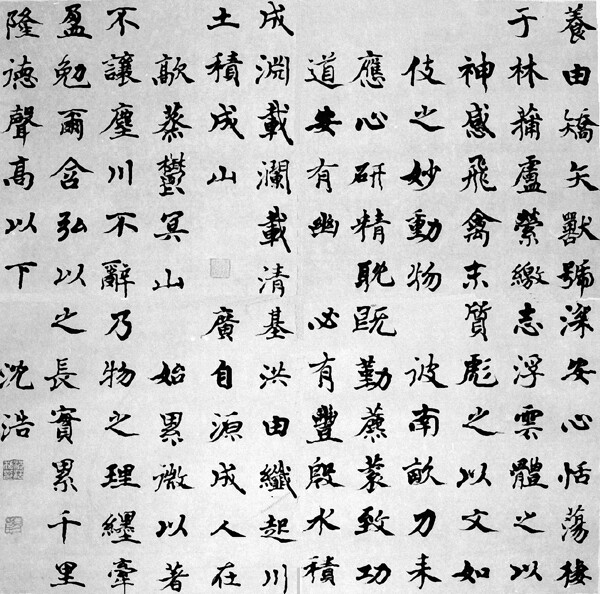 養由矯矢獸號深安心恬蕩棲
于林蒱盧縈繳志浮雲體之以
神感飛禽末質彪之以文如
伎之妙動物彼南畝力耒
應心研精耽既勤藨蓘致功
道安有幽必有豐殷水積
成淵載瀾載清基洪由纖起川
土積成山廣自源成人在
歊蒸鬱冥山始累微以著
不讓塵川不辭乃物之理纆牽
盈勉爾含弘以之長實累千里
隆德聲高以下沈浩